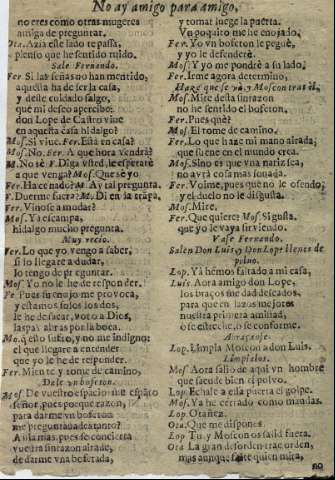 No ay amigo para amigo.
no eres como otras mugeres
amiga de preguntar.
Ota. Azia esse lado te passa,
pienso que he sentido ruido.
Sale Fernando.
Fer Si las señas no han mentido,
aquesta ha de ser la casa,
y deste cuidado salgo,
que mi deseo apercebio.
don Lope de Castro viue
en aquesta casa hidalgo?
Mos. Si viue. Fer. Està en casa?
Mos. No. Fer. A que hora vendrà?
M. No sè. F. Diga vsted, le esperarè
a que venga? Mos. Que sè yo
Fer. Ha cenado? M. Ay tal pregunta.
F. Duerme fuera? M. Di en la trãpa,
Fer. Vinose a mudar?
Mos. Ya escampa,
hidalgo mucho pregunta.
Muy recio.
Fer. Lo que yo vengo a saber,
si lo llegare a dudar,
lo tengo de preguntar.
Mos. Yo no le he de responder.
Fe. Pues su enojo me provoca,
y estamos solos los dos,
le he de sacar, voto a Dios,
las palabras por la boca.
Mo. q̃ esso sufro, y no me indigno:
el que llegare a entender
que yo le he de responder.
Fer. Miente y tome de camino,
Dele vn bofeton.
Mos. De vuelto espacio me espãto
señor, pues porque razon,
para darme vn bofeton
me preguntada tanto?
A vila mas pues se concierta
vuestra sinrazon airada,
de darme vna bofetada,
y tomar luego la puerta.
Vn poquito me he enojado,
Fer. Yo vn bofeton le peguè,
y yo le defenderè.
Mos. Y yo me pondrè a su lado.
Fer. Irme agora determino,
Haze que se và, y Moscon tras èl.
Mos. Mire desta sinrazon
no he sentido el bofeton.
Fer. Pues què?
Mos. El tome de camino.
Fer. Lo que haze mi mano airada;
que suene en el mundo crea.
Mos. Sino es que vna nariz sea,
no avrà cosa mas sonada.
Fer. Voime, pues que no le ofendo;
y el duelo no le disgusta.
Mos. Mire,
Fer. Que quiere? Mos. Si gusta,
que yo le vaya sirviendo.
Vase Fernando.
Salen Don Luis, y Don Lope llenos de
polvo.
Lop. Yà hêmos faltado a mi casa,
Luis. Aora amigo don Lope,
los braços me dad deseados,
para que en lazos mejores
nuestra primera amistad,
ò se estreche, ò se conforme.
Abraçanse.
Lop. Limpia Moscon a don Luis.
Limpialos.
Mos Aora salio de aqui vn hombre
que sacude bien el polvo.
Lop Echale a ella puerta el golpe.
Mos. Ya he cerrado como mandas.
Lop. Otañez.
Ota. Que me dispones
Lop Tu, y Moscon os salid fuera.
Ota La gran desorden trae orden,
mas aunque sale quien mira,
no